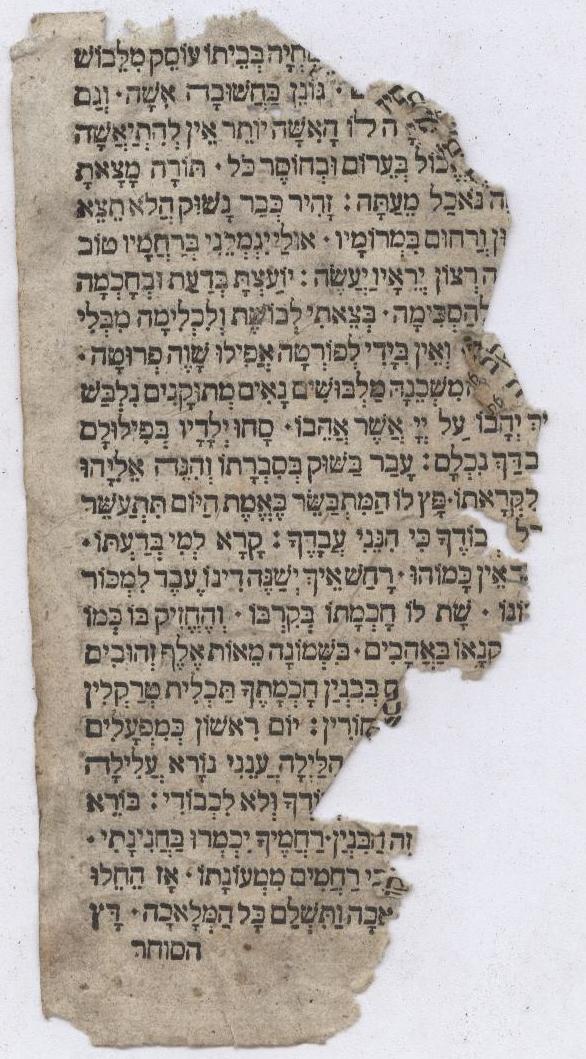 מִחְיָה בְּבֵיתוֹ עוֹסֵק מִלְּבוּשׁ
גּוֹנֵן בַּחֲשׁוּבָה אִשָּׁה · וְגַם
לוֹ הָאִשָּׁה יוֹתֵר אֵין לְהִתְיָאֲשָׁה
בְּעֵרוֹם וּבְחוֹסֶר כֹּל · תּוֹרָה מָצָאתָ
נֹּאכַל מֵעַתָּה : זָהִיר כְּבַר בַשּׁוּק הֲלֹא תֵצֵא
וְרַחוּם בִּמְרוֹמָיו · אוּלַי יִגְמְלֵנִי בְּרַחֲמָיו טוֹב
רְצוֹן יְרֵאָיו יַעֲשֶׂה : יוֹעַצְתָּ בְּדַעַת וּבְחָכְמָה
לְהַסְכִּימָה · בְּצֵאתִי לְבוֹשֶׁת וְלִכְלִימָּה מִבְּלִי
וְאֵין בְּיָדִי לִפּוֹרְטָה אֲפִילוּ שָׁוֶה פְרוּטָה ·
מִשְּׁכֵנָהּ מַלְבּוּשִׁים נָאִים מְתוּקָּנִים נִלְבַּשׁ
יְהָבוֹ עַל יְיָ אֲשֶׁר אֲהֵבוֹ · סָחוּ יְלָדָיו בְּפִילּוּלָם
דַּךְ נִכְלָם : עָבַר בַּשּׁוּק בְּסִבְרָתוֹ וְהִנֵּה אֵלִיָּהוּ
לִקְרָאתוֹ · פָּץ לוֹ הַמִּתְבַּשֵּׂר בֶּאֱמֶת הַיּוֹם תִּתְעַשֵּׁר
בוֹדֶךָ כִּי הִנְנִי עַבְדֶּךָ : קָרָא לְמִי בְּדַעְתּוֹ ·
אֵין כָּמוֹהוּ · רָחַשׁ אֵיךְ יְשַׁנֶּה דִינוֹ עֶבֶד לִמְכּוֹר
שָׁת לוֹ חָכְמָתוֹ בְּקִרְבּוֹ · וְהֶחֱזִיק בּוֹ כְּמוֹ
קְנָאוֹ בַּאֲהָבִים · בִּשְׁמוֹנֶה מֵאוֹת אֶלֶף זְהוּבִים
בְּבִנְיַן חָכְמָתֶךָ תַּכְלִית טְרַקְלִין
חוֹרִין : יוֹם רִאשׁוֹן בְּמִפְעָלִים
הַלַּיְלָה עֲנֵנִי נוֹרָא עֲלִילָה
וְלֹא לִכְבוֹדִי : בּוֹרֵא
זֶה הַבִּנְיָן · רַחֲמֶיךָ יִכְמְרוּ בַּחֲנִינָתִי ·
רַחֲמִים מִמְּעוֹנָתוֹ · אָז הֵחֵלּוּ
וַתִּשְׁלַם כָּל הַמְּלָאכָה · דָּץ
הסוחר